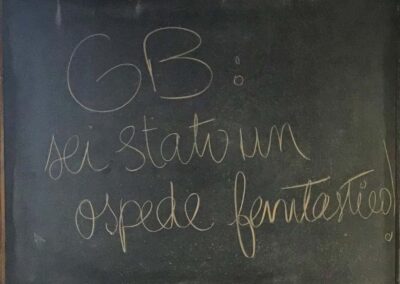 GB:
sei stato un
ospede fantastico!